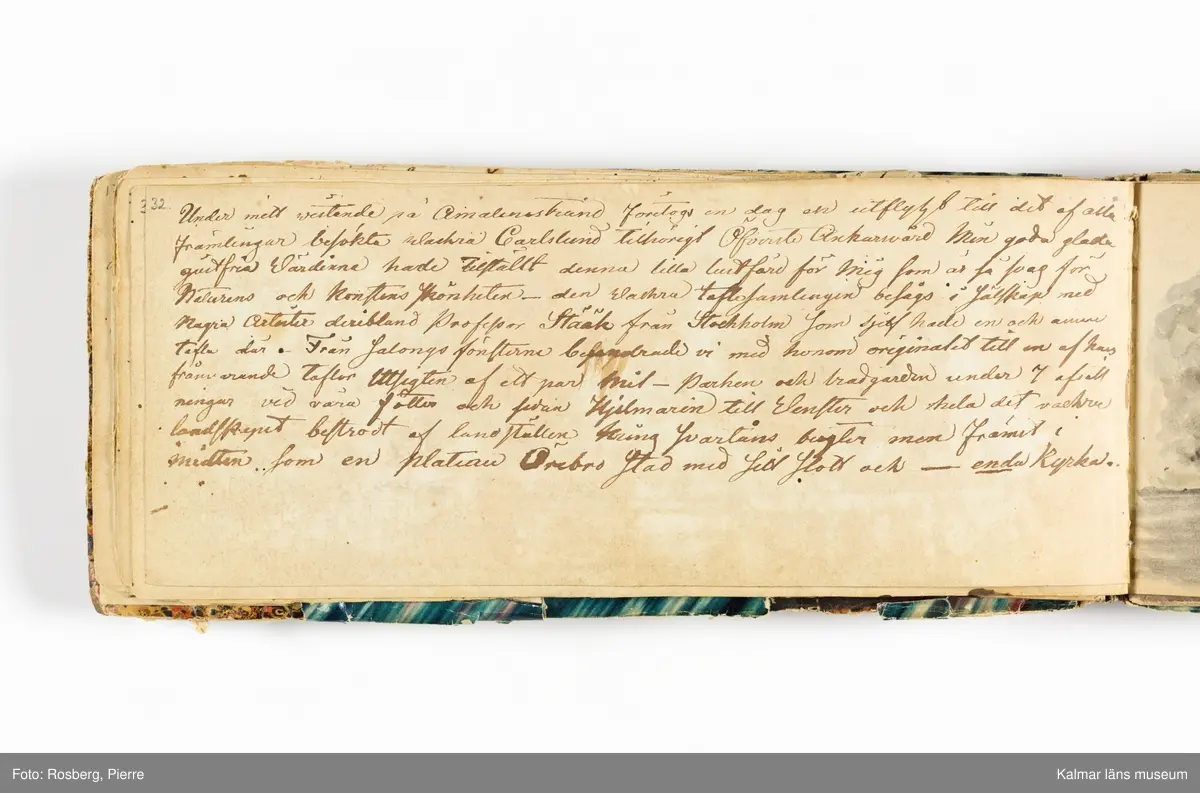 332.
Under mitt vistande på Amalenestrand företogs en dag en utflygt till det af alla
främlingar besökta vackra Carlslund tillhörigt Öfverste Ankarsvärd Min goda glada
gästfria Värdinna hade tillställt denna lilla lustfärd för Mig som är så svag för
Naturens och Konstens skönheter – den vackra taflesamlingen besågs i sälskap med
Några Artister deribland Professor Stääk från Stockholm som sjelf hade en och annan
tafla där. Från Salongs fönsterna beundrade vi med honom originalet till en af hans
frånvarande taflor Utsigten af ett par Mil – Parken och trädgården under 7 afsatt
ningar vid våra fötter och sedan Hjelmaren till Venster och hela det vackra
landskapet beströdt af landställen kring Svartåns bugter men främst i
midten som en plateau Örebro Stad med sitt Slott och — enda Kyrka.
Foto: Rosberg, Pierre
Kalmar läns museum